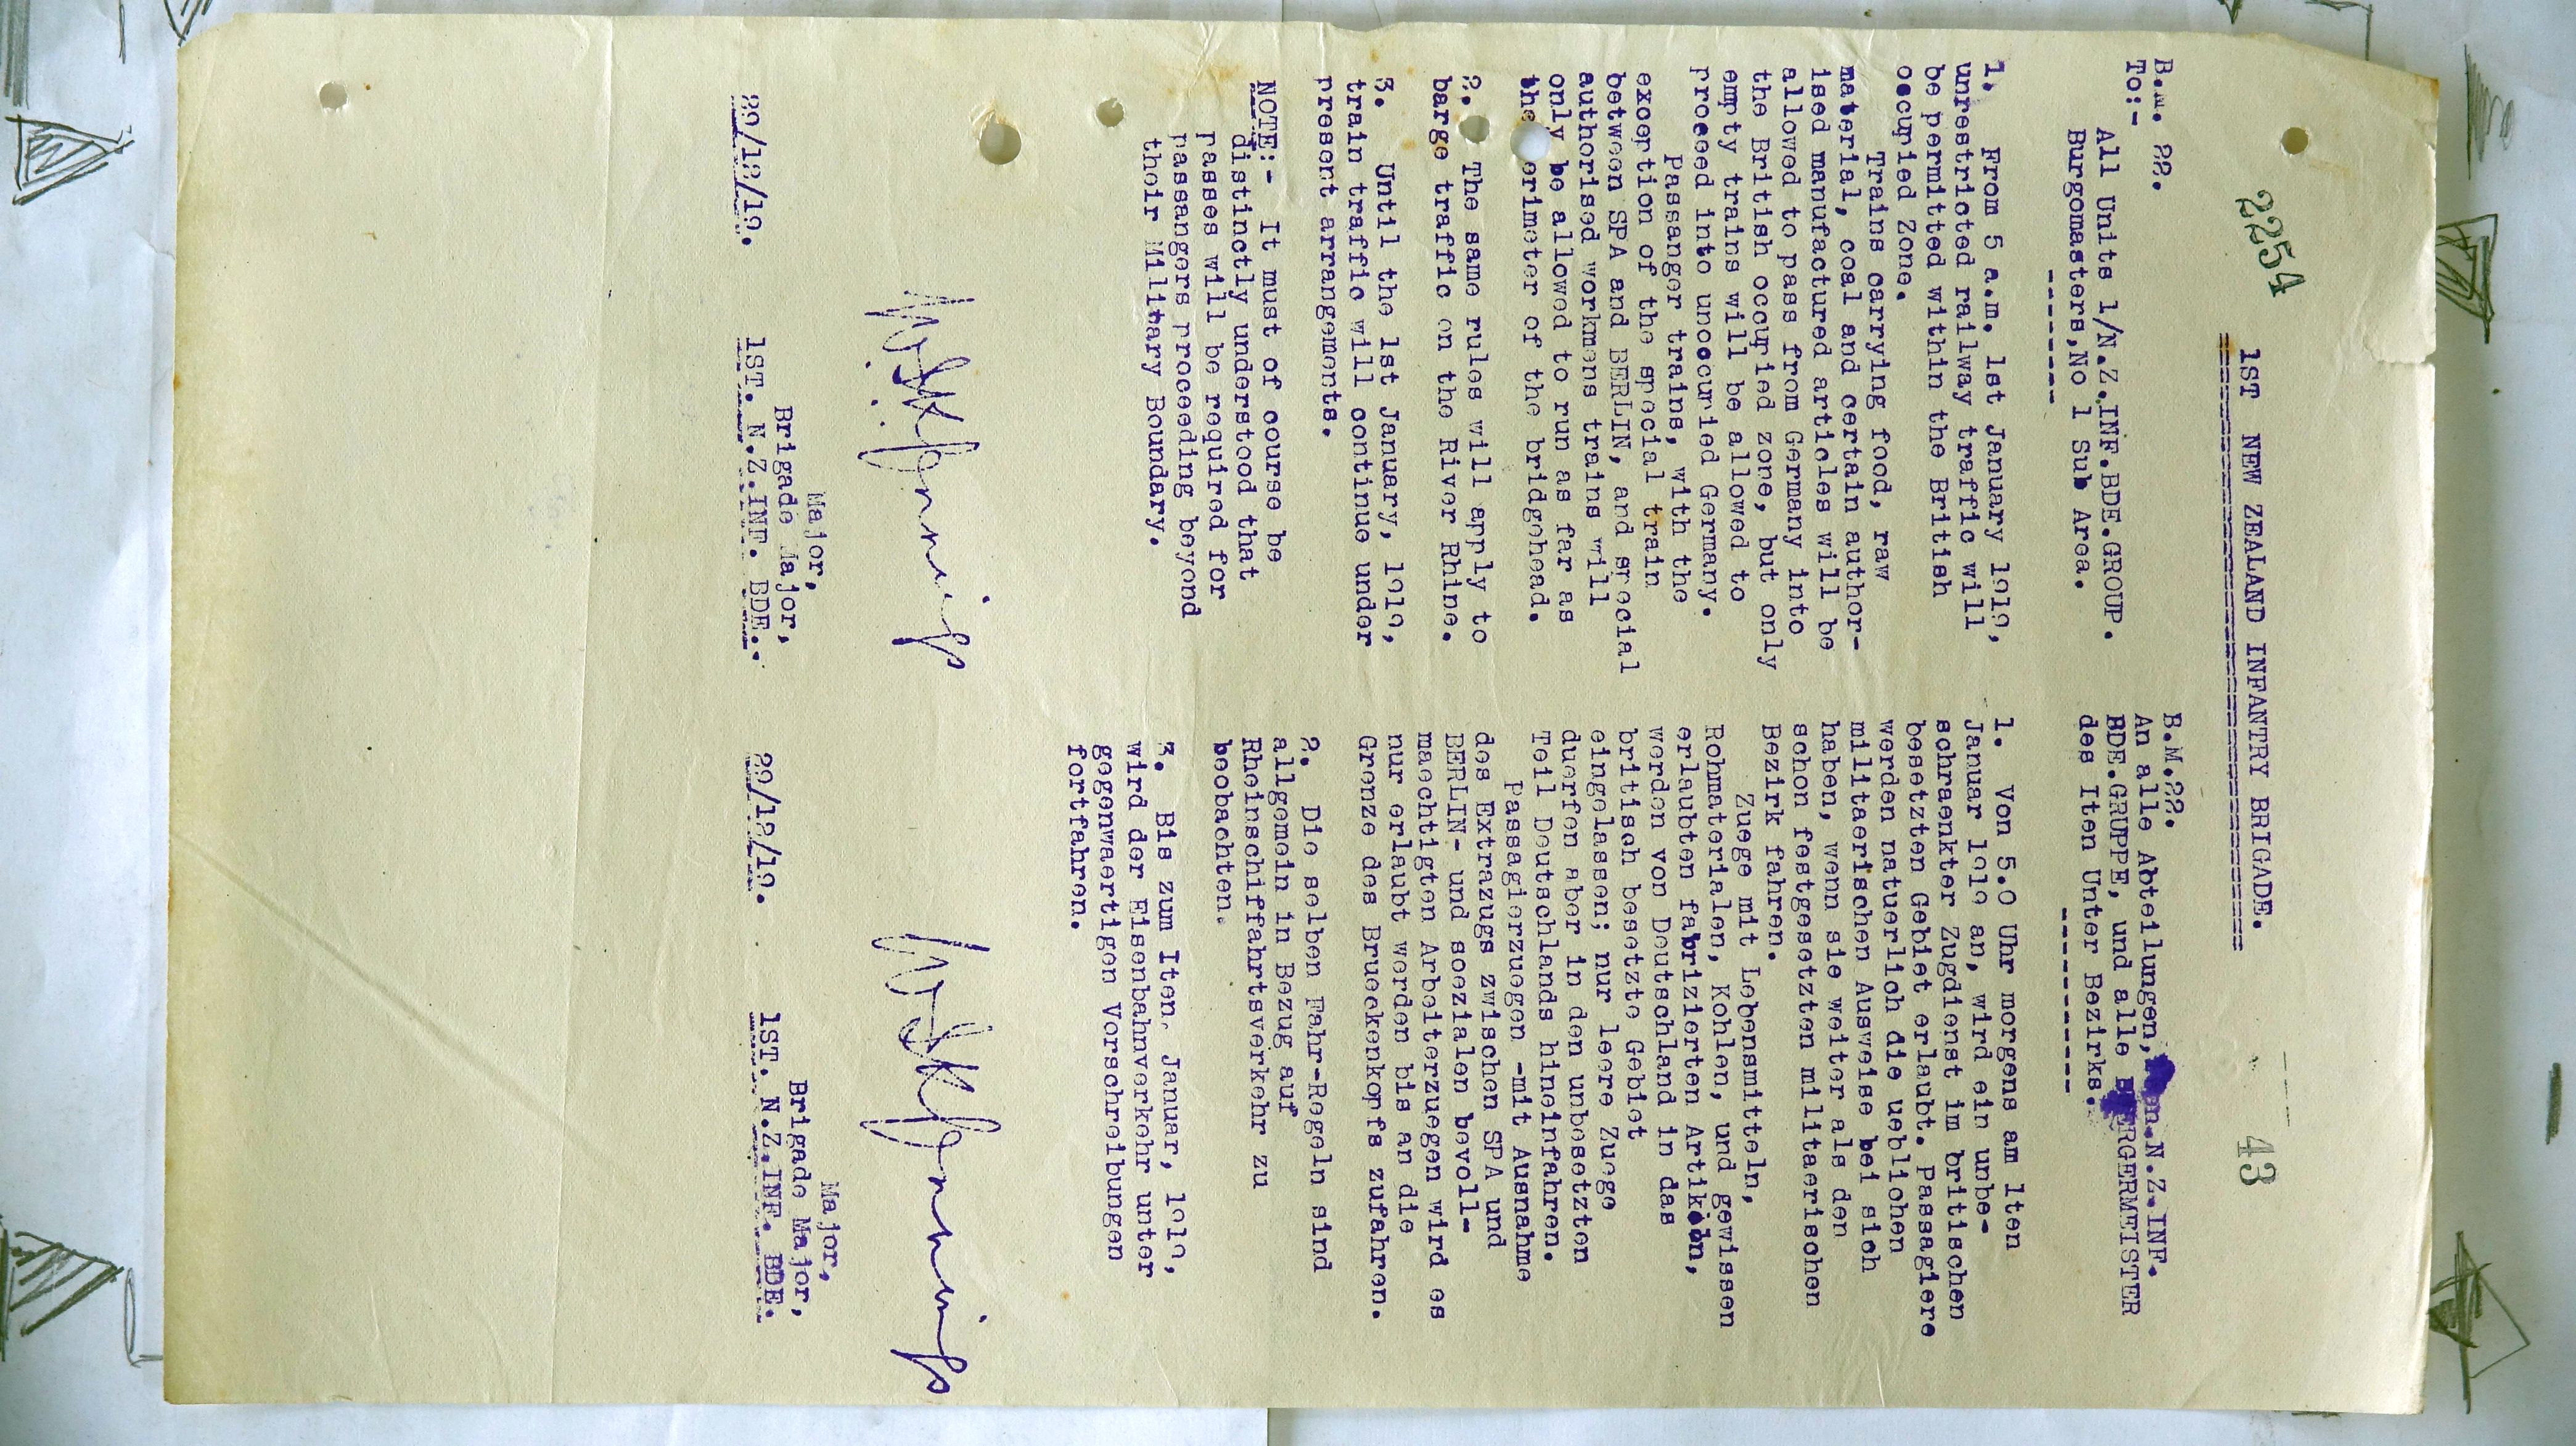 2254
43
1ST NEW ZEALAND INFANTRY BRIGADE.
B.M. 22.
To:-
All Units 1/N.Z.INF.BDE.GROUP.
Burgomasters,No 1 Sub Area.
1. From 5 a.m. 1st January 1919,
unrestricted railway traffic will
be permitted within the British
occupied Zone.
Trains carrying food, raw
material, coal and certain author-
ised manufactured articles will be
allowed to pass from Germany into
the British occupied zone, but only
empty trains will be allowed to
proceed into unoccupied Germany.
Passanger trains, with the
exception of the special train
between SPA and BERLIN, and special
authorised workmens trains will
only be allowed to run as far as
the erimeter of the bridgehead.
2. The same rules will apply to
barge traffic on the River Rhine.
3. Until the 1st January, 1919,
train traffic will continue under
present arrangements.
NOTE:- It must of course be
distinctly understood that
passes will be required for
passangers proceeding beyond
their Military Boundary.
Major,
Brigade Major,
29/12/19. 1ST. N.Z.INF. BDE.
B.M.22.
An alle Abteilungen, en.N.Z.INF.
BDE.GRUPPE, und alle BERGERMEISTER
des Iten Unter Bezirks.
1. Von 5.0 Uhr morgens am 1ten
Januar 1919 an, wird ein unbe-
schraenkter Zugdienst im britischen
besetzten Gebiet erlaubt. Passagiere
werden natuerlich die ueblichen
militaerischen Ausweise bei sich
haben, wenn sie weiter als den
schon festgesetzten militaerischen
Bezirk fahren.
Zuege mit Lebensmitteln,
Rohmaterialen, Kohlen, und gewissen
erlaubten fabrizierten Artikeln,
werden von Deutschland in das
britisch besetzte Gebiet
eingelassen; nur leere Zuege
duerfen aber in den unbesetzten
Teil Deutschlands hineinfahren.
Passagierzuegen -mit Ausnahme
des Extrazugs zwischen SPA und
BERLIN- und soezialen bevoll-
maechtigten Arbeiterzuegen wird es
nur erlaubt werden bis an die
Grenze des Brueckenkopfs zufahren.
2. Die selben Fahr-Regeln sind
allgemein in Bezug auf
Rheinschiffahrtsverkehr zu
beobachten.
3. Bis zum Iten. Januar, 1919,
wird der Eisenbahnverkehr unter
gegenwaertigen Vorschreibungen
fortfahren.
Major,
Brigade Major,
29/12/19. 1ST. N.Z.INF. BDE.